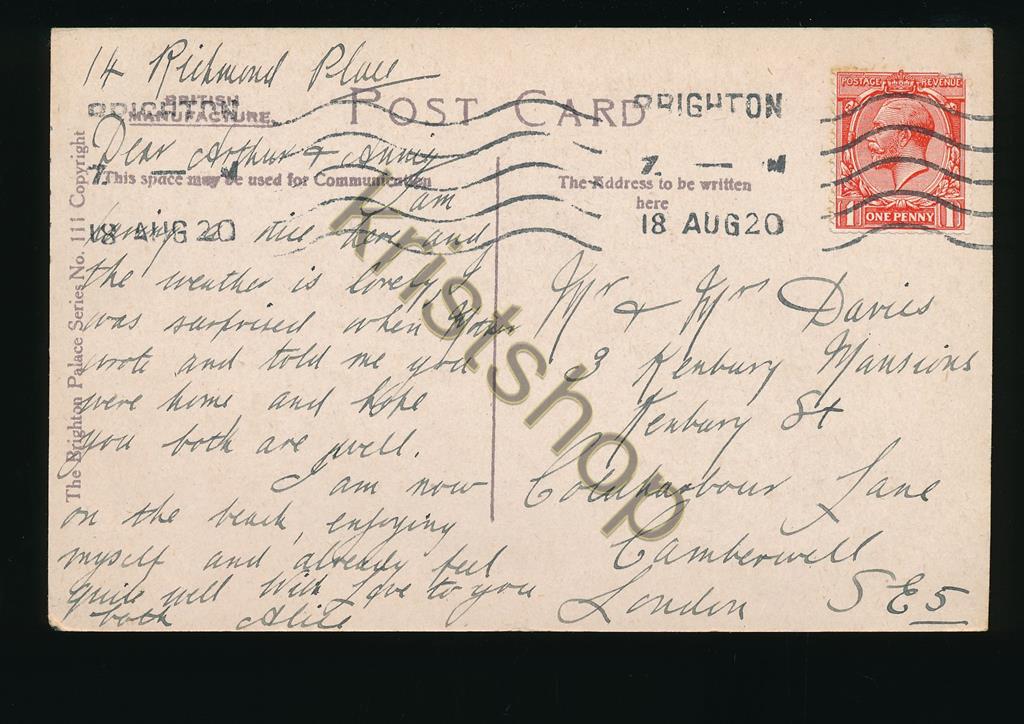 14 Richmond Place
BRIGHTON
BRITISH
MANUFACTURE.
POST CARD
BRIGHTON
POSTAGE REVENUE
ONE PENNY
7 — M
18 AUG 20
7. — M
18 AUG 20
Dear Arthur & Annie
This space may be used for Communication
The Address to be written
here
I am
a nice here and
the weather is lovely I
was surprised when
wrote and told me you
were home and hope
you both are well.
I am now
on the beach enjoying
myself and already feel
quite well With Love to you
both Alice
Mr & Mrs Davies
3 Kenbury Mansions
Kenbury St
Coldharbour Lane
Camberwell
London SE5
The Brighton Palace Series No. 111 Copyright
kristshop